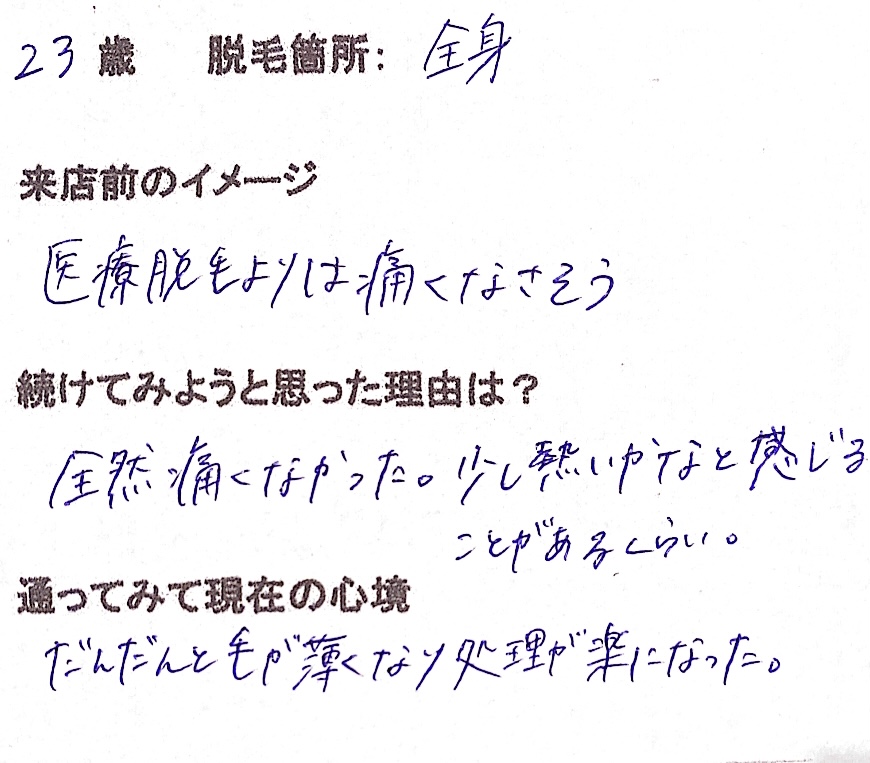 23 歳 脱毛箇所: 全身
来店前のイメージ
医療脱毛よりは痛くなさそう
続けてみようと思った理由は？
全然痛くなかった。少し熱いかなと感じる
ことがあるくらい。
通ってみて現在の心境
だんだんと毛が薄くなり処理が楽になった。